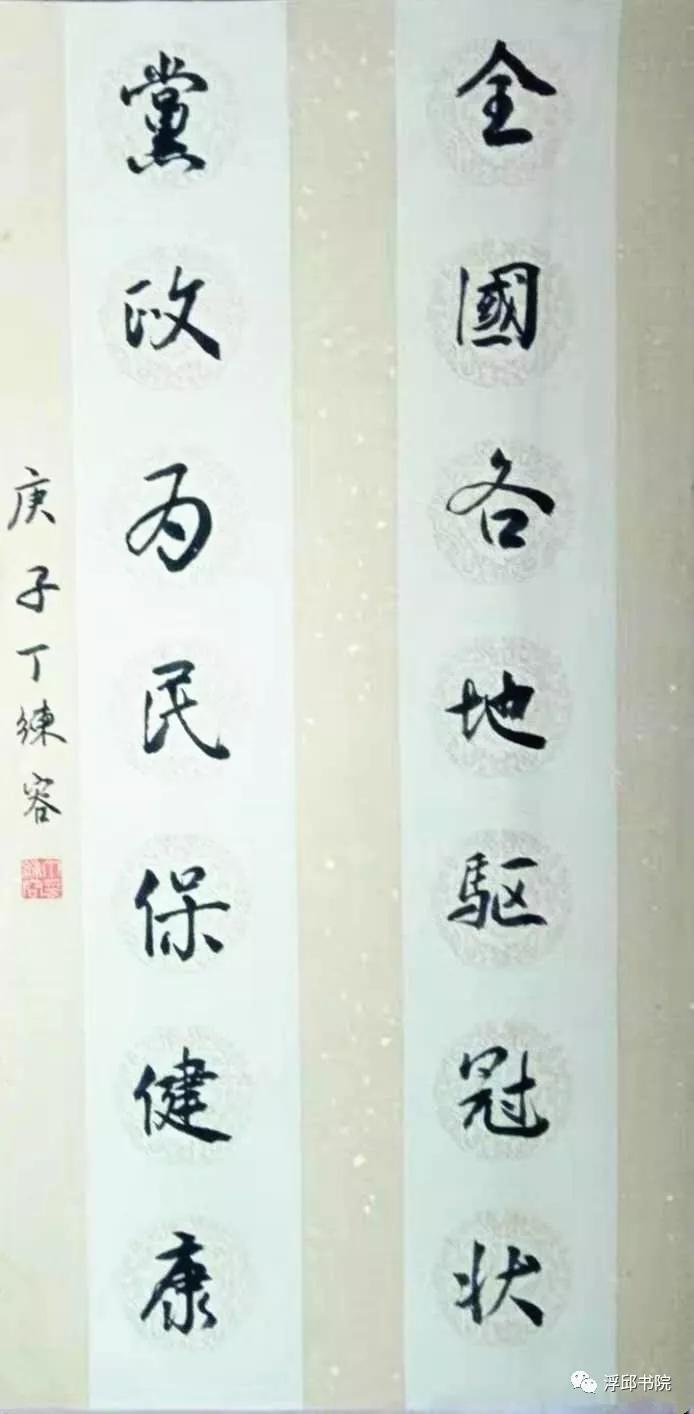 全國各地驱冠状
黨政为民保健康
庚子丁练容
浮邱书院